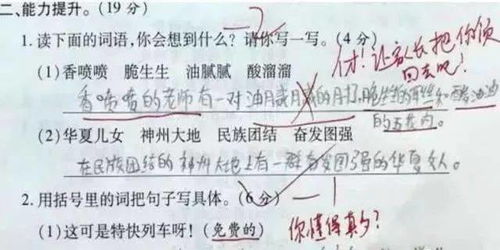 二、能力提升。(19 分)
1. 读下面的词语,你会想到什么? 请你写一写。(4 分)
才!让家长把你领
回去吧!
(1)香喷喷 脆生生 油腻腻 酸溜溜
香喷喷的老师有一对油腻腻的
的五花肉。
(2)华夏儿女 神州大地 民族团结 奋发图强
在民族团结的神州大地上有一群奋发图强的华夏
2. 用括号里的词把句子写具体。(6 分)
(1)这可是特快列车呀! (免费的)
你懂得真多?